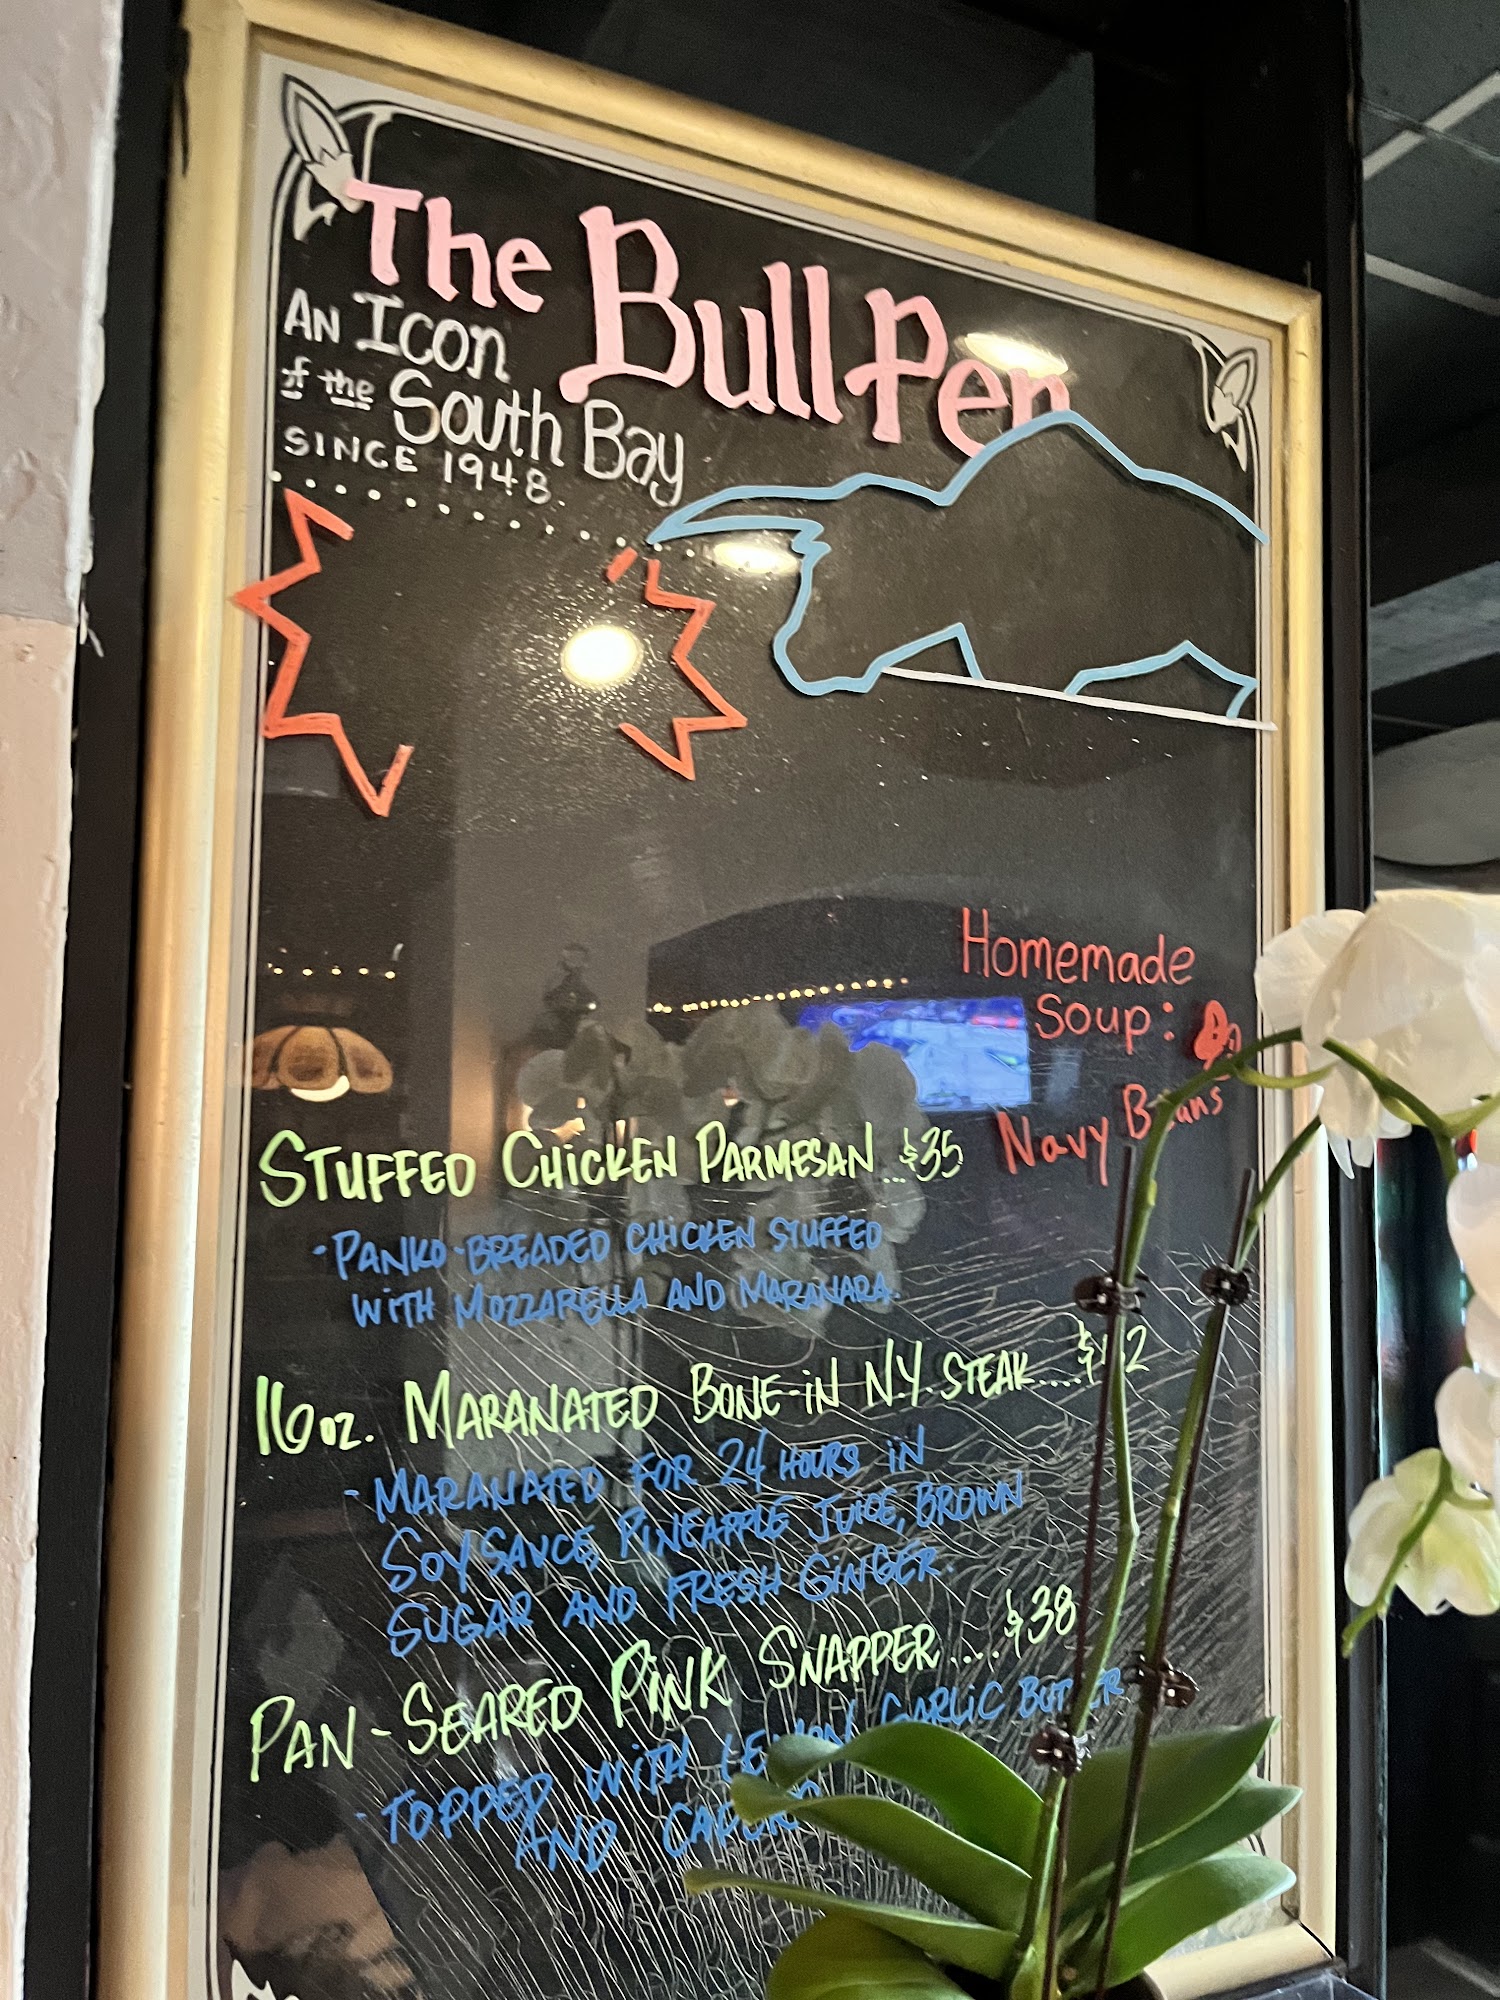 The Bull Pen
AN Icon
of the South Bay
SINCE 1948.
Homemade
Soup:
Navy Beans
STUFFED CHICKEN PARMESAN ...$35
- PANKO-BREADED CHICKEN STUFFED
WITH MOZZARELLA AND MARANARA.
16oz. MARANATED BONE-IN N.Y. STEAK....
- MARANATED FOR 24 HOURS IN
SOY SAUCE, PINEAPPLE JUICE, BROWN
SUGAR AND FRESH GINGER.
PAN-SEARED PINK SNAPPER....$38
- TOPPED WITH LEMON GARLIC BUTTER
AND